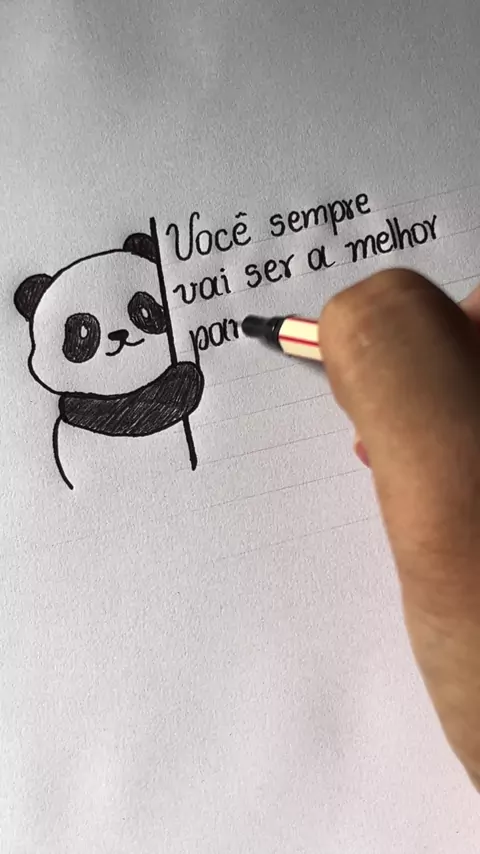 Você sempre
vai ser a melhor
par